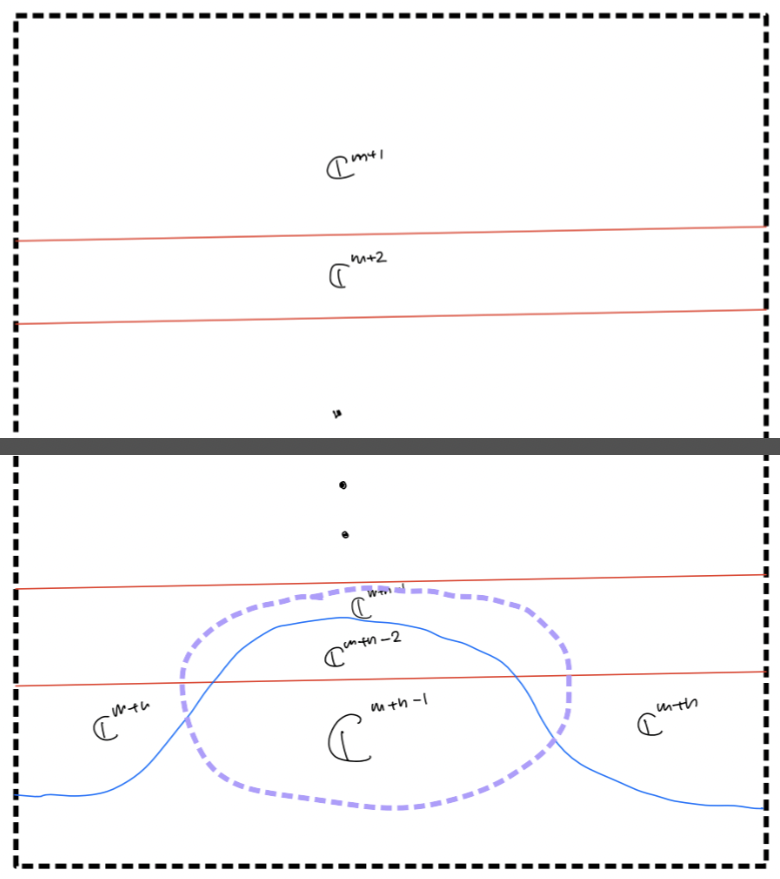 ℂ^{m+1}
ℂ^{m+2}
ℂ^{m+n-1}
ℂ^{m+n-2}
ℂ^{m+n} ℂ^{m+n-1} ℂ^{m+n}